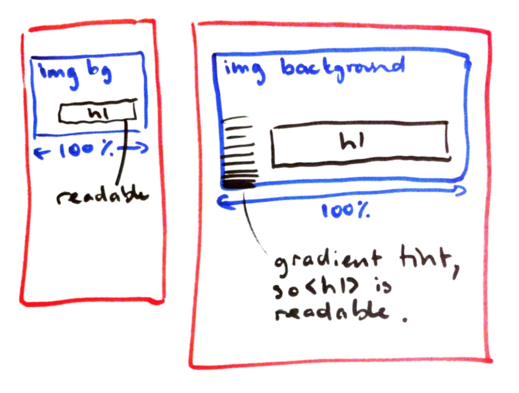 img bg
h1
100%
readable
img background
h1
100%
gradient tint,
so <h1> is
readable.